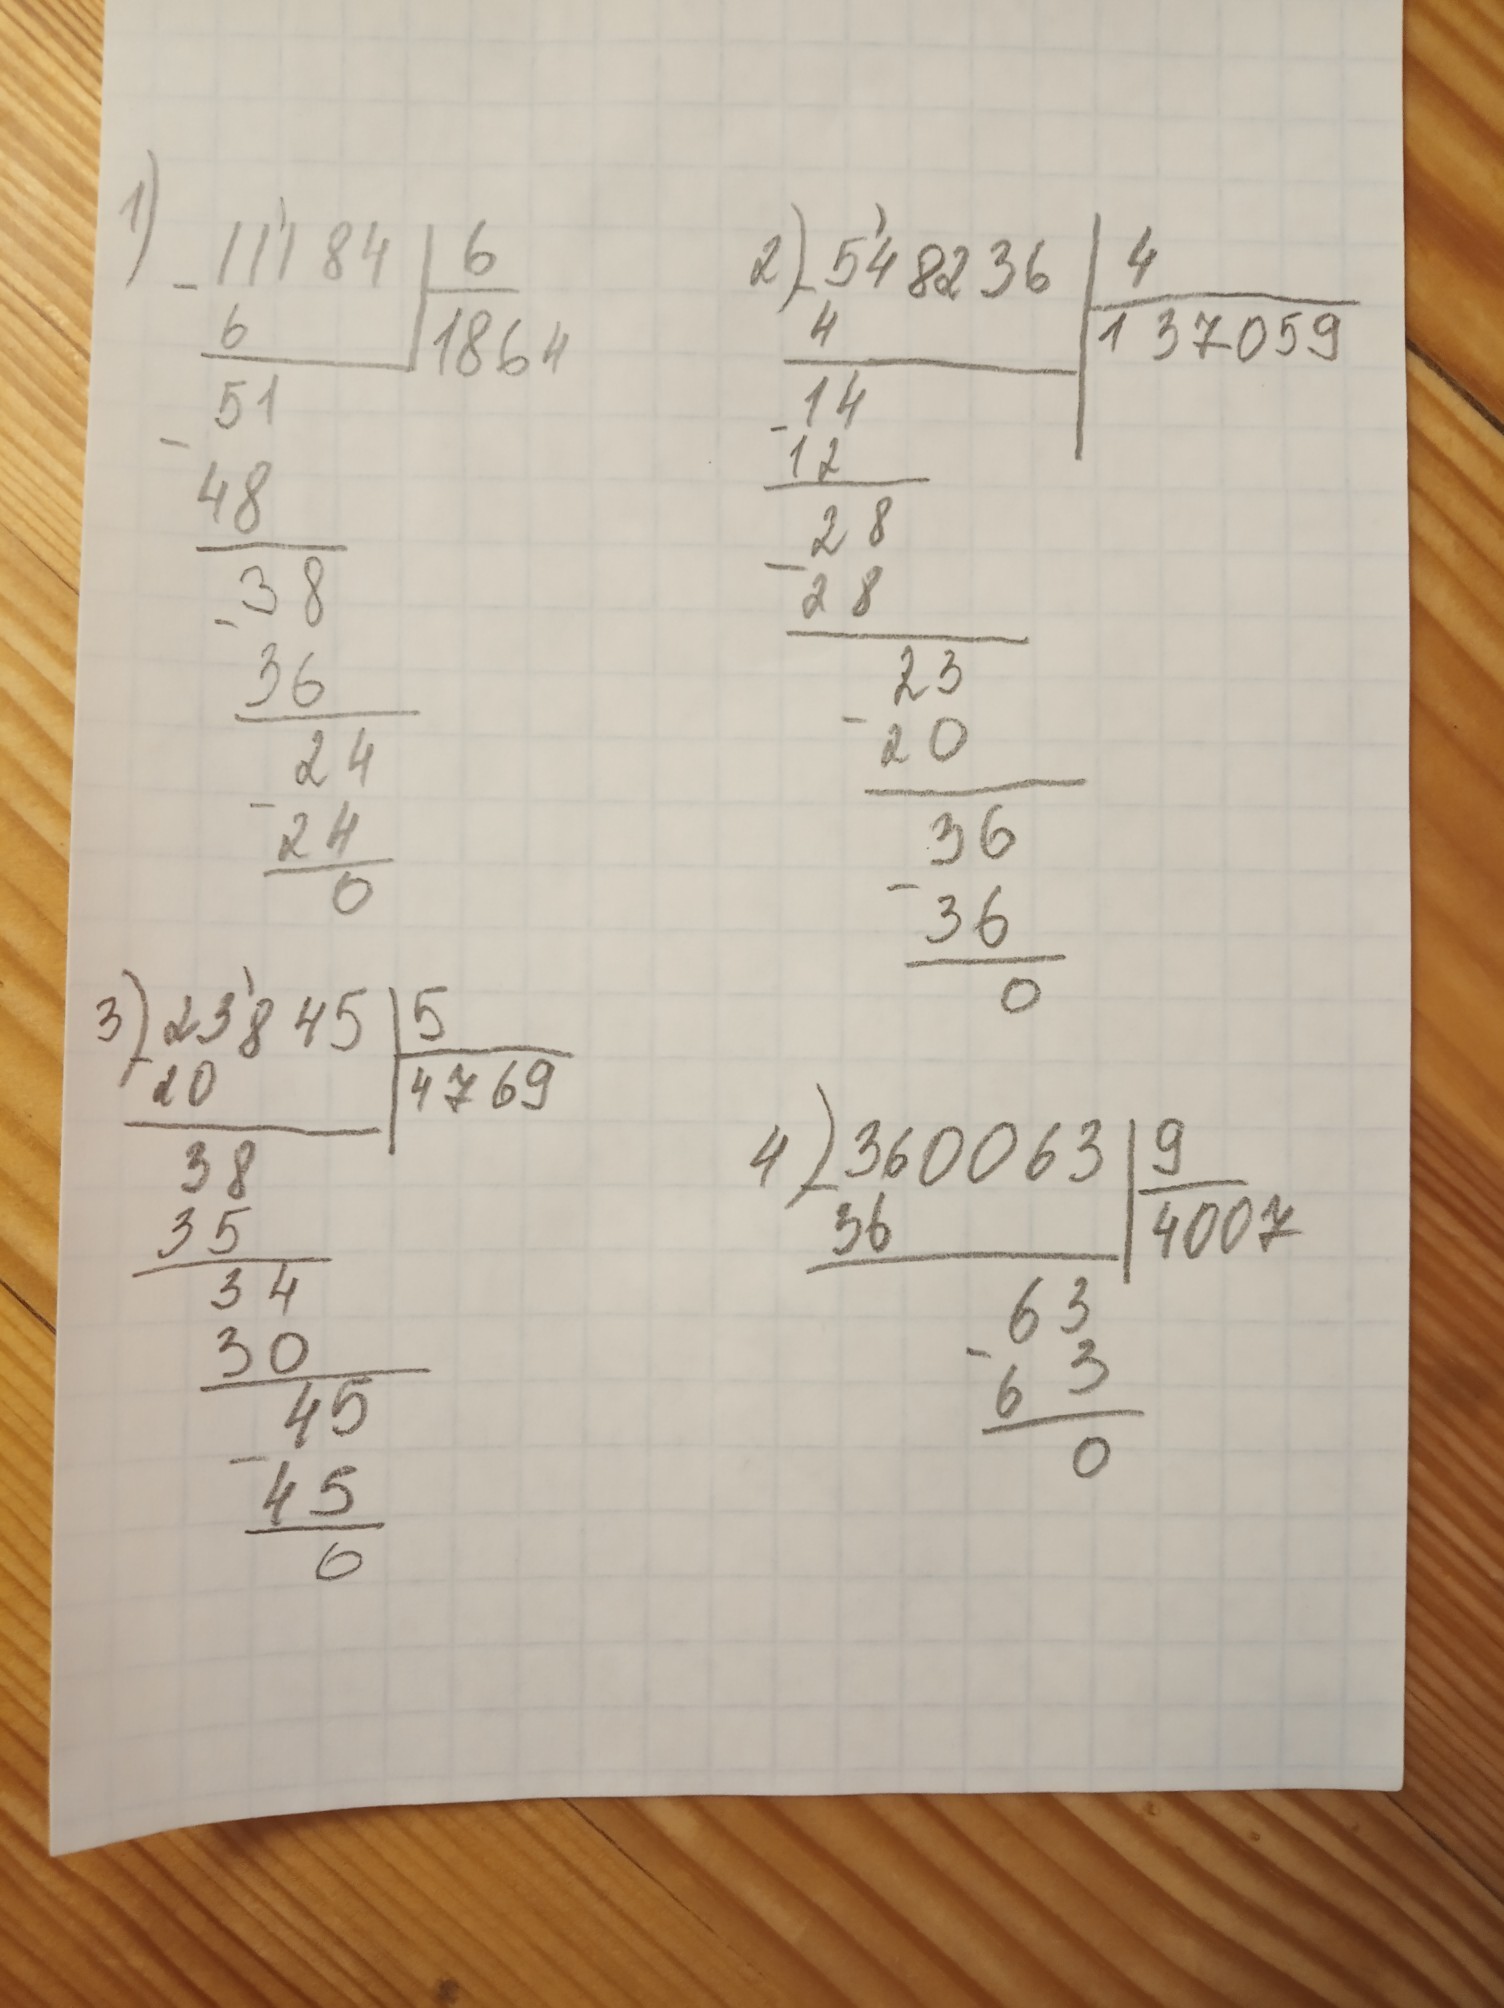 1) - 11184 6
6 1864
51
- 48
38
- 36
24
- 24
0
2) - 548236 4
4 137059
14
- 12
28
- 28
23
- 20
36
- 36
0
3) - 23845 5
20 4769
38
35
34
30
45
- 45
0
4) - 360063 9
36 4007
63
- 63
0